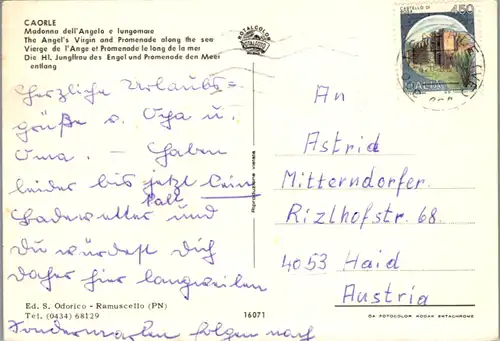 CAORLE
Madonna dell'Angelo e lungomare
The Angel's Virgin and Promenade along the sea
Vierge de l'Ange et Promenade le long de la mer
Die Hl. Jungfrau des Engel und Promenade den Meer
entlang
ROTALCOLOR
450
Herzliche Urlaubs-
grüße v. Opa u.
Oma. – Haben
leider bis jetzt kein
Badewetter und
Du würdest Dich
daher hier langweilen
Sondermarken folgen nach
An
Astrid
Mitterndorfer
Rizlhofstr. 68.
4053 Haid
Austria
Riproduzione vietata
Ed. S. Odorico - Ramuscello (PN)
Tel. (0434) 68129
16071
DA FOTOCOLOR KODAK EKTACHROME